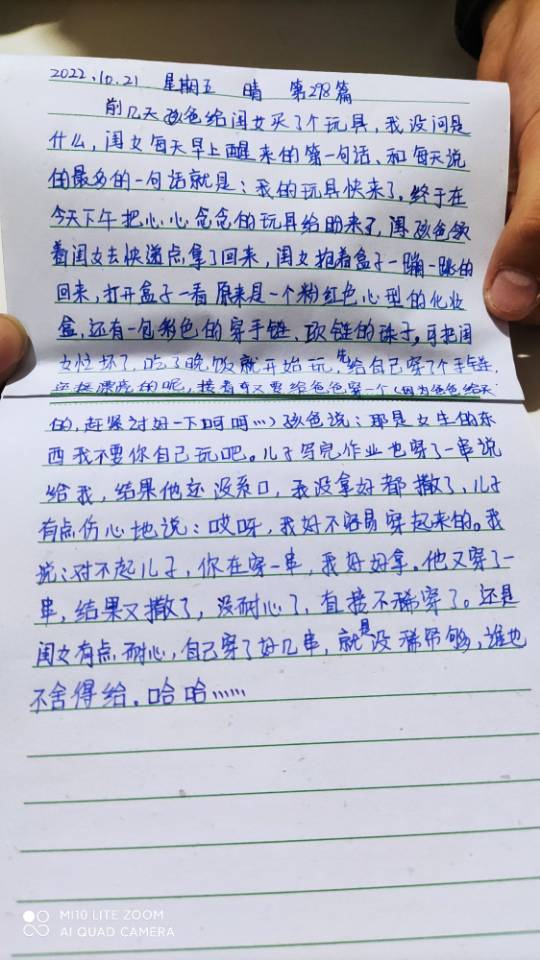 2022.10.21 星期五 晴 第298篇
前几天孩爸给闺女买了个玩具，我没问是
什么，闺女每天早上醒来的第一句话、和每天说
的最多的一句话就是：我的玩具快来了，终于在
今天下午把心心念念的玩具给盼来了，孩爸领
着闺女去快递点拿了回来，闺女抱着盒子一蹦一跳的
回来，打开盒子一看原来是一个粉红色心型的化妆
盒，还有一包彩色的穿手链、项链的珠子，可把闺
女忙坏了，吃了晚饭就开始玩，先给自己穿了个手链，
漂亮的呢，接着又要给爸爸穿一个（因为爸爸给买
的，赶紧讨好一下呵呵…）孩爸说：那是女生的东
西我不要你自己玩吧。儿子写完作业也穿了一串说
给我，结果他还没系口，我没拿好都撒了，儿子
有点伤心地说：哎呀，我好不容易穿起来的。我
说：对不起儿子，你在穿一串，我好好拿。他又穿了一
串，结果又撒了，没耐心了，直接不稀穿了。还是
闺女有点耐心，自己穿了好几串，就是没稀帘够，谁也
不舍得给。哈哈……
MI10 LITE ZOOM
AI QUAD CAMERA